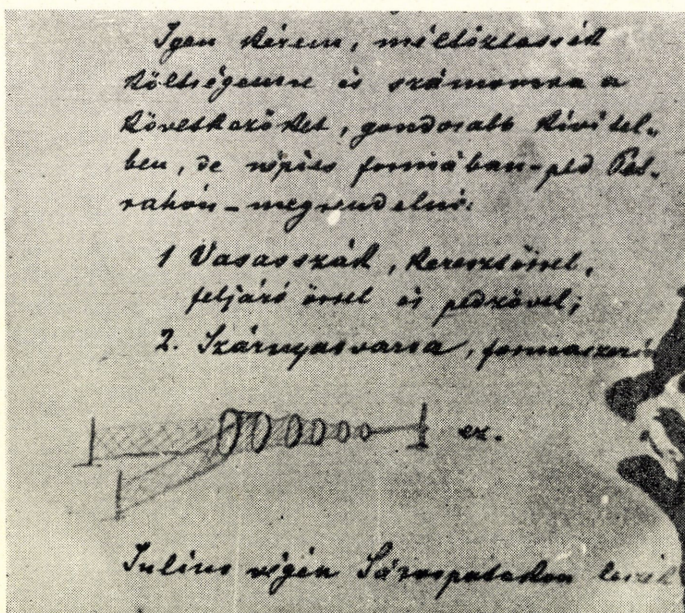 Igen kérem, méltóztassék
költségemre és számomra a
következőket, gondosabb kivitel-
ben, de népies formában - pld Pet-
rahón - megrendelni:
1 Vasasszák, keresztőrrel,
feljáró őrrel és pedzővel;
2. Szárnyasvarsa, formaszerin
ez.
Julius végén Sárospatakon leszek